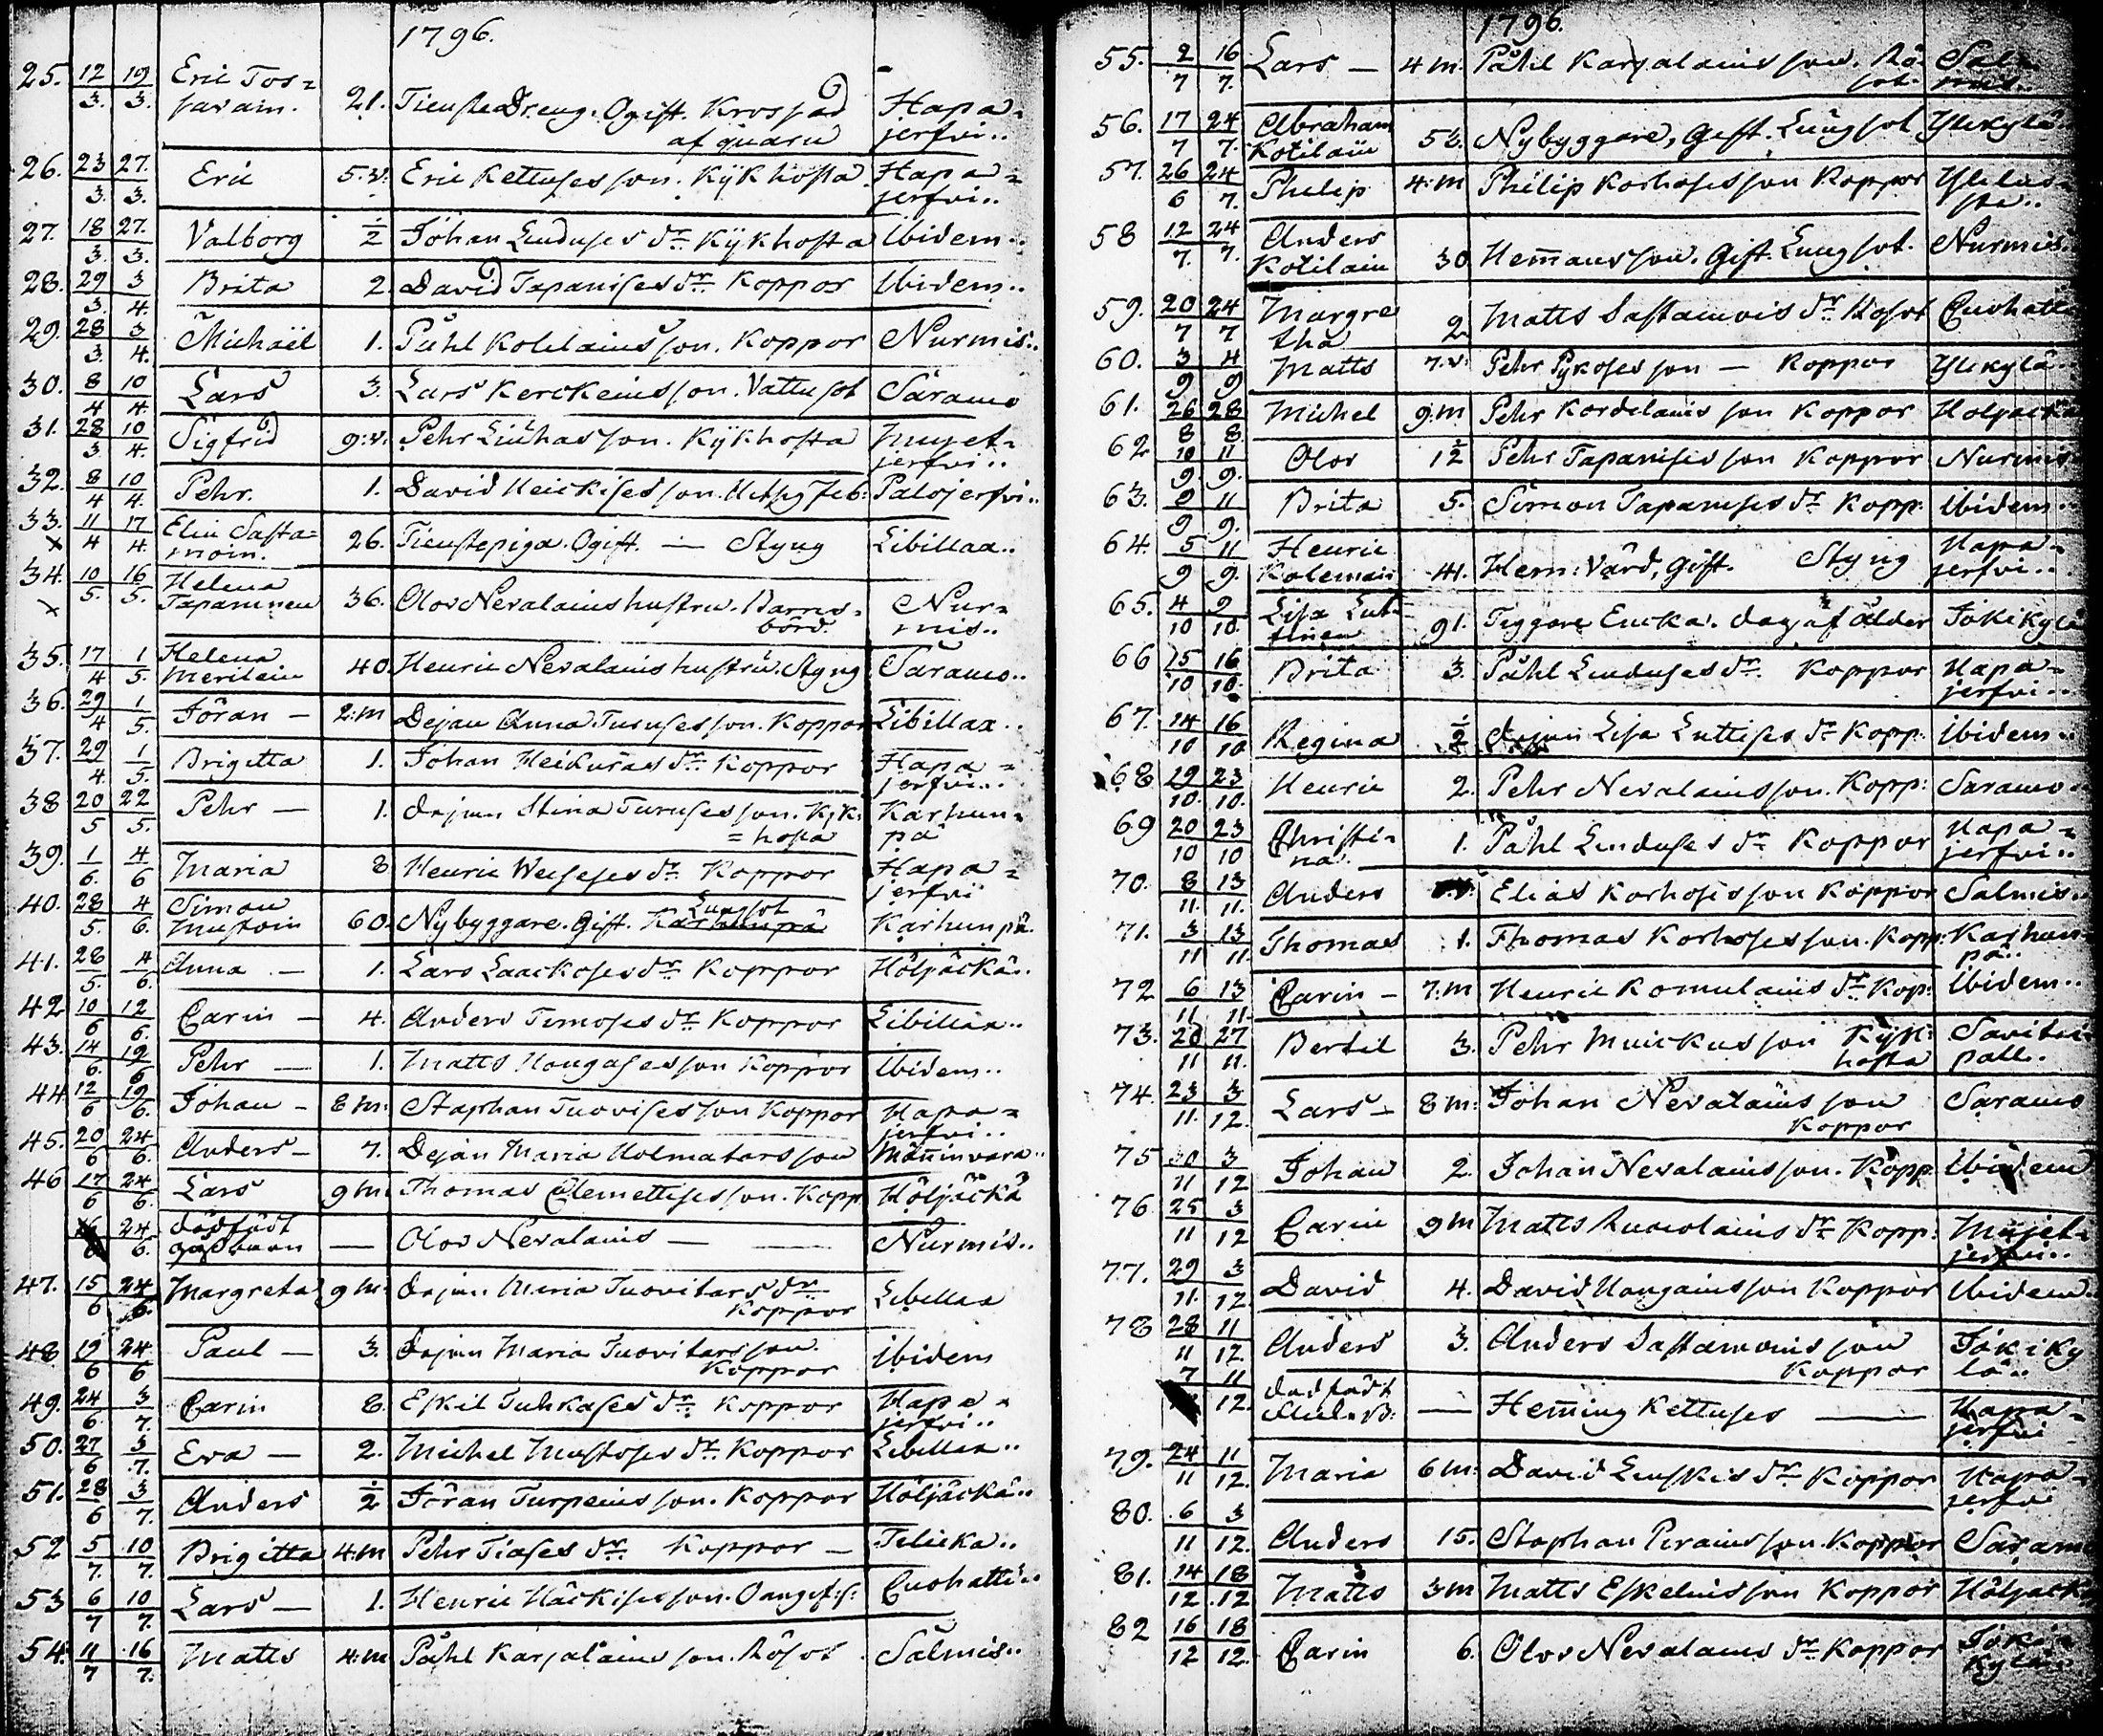 1796.
25. 12/3. 19/3. Eric Tos=
savain. 21. Tienstedreng. Ogift. Krossad Hapa=
af quarn jerfvi..
26. 23/3. 27./3. Eric 5.v. Eric Kettuses son. Kykhosta Hapa=
jerfvi..
27. 18/3. 27./3. Valborg ½ Johan Linduses dr. Kykhosta Ibidem..
28. 29/3. 3/4. Brita 2. David Tapanises dr. Koppor Ibidem..
29. 28/3. 3/4. Michaël 1. Påhl Kotilains son. Koppor Nurmis..
30. 8/4 10/4. Lars 3. Lars Kerckeins son. Vattusot Saramo
31. 28/3. 10/4. Sigfrid 9.v. Pehr Liuhas son. Kykhosta Mujet=
jerfvi..
32. 8/4 10/4. Pehr. 1. David Heickises son. Palojerfvi..
33. 11/4 17/4. Elin Sasta=
x moin. 26. Tienstepiga. Ogift. — Styng Libillaa..
34. 10/5. 16/5. Helena
x Tapaninen 36. Olov Nevalains hustru. Barns= Nur=
börd. mis..
35. 17/4 1/5. Helena
Meriläin 40. Henric Nevalains hustru. Styng Saramo..
36. 29/4 1/5. Jöran — 2.m Dejan Anna Turuses son. Koppor Libillaa..
37. 29/4. 1/5. Brigitta 1. Johan Heikuras dr. Koppor Hapa=
jerfvi..
38 20/5 22/5. Pehr — 1. Dejan Stina Turuses son. Kyk= Karhun=
=hosta på
39. 1/6. 4/6 Maria 8 Henric Weseses dr. Koppor Hapa=
jerfvi
40. 28/5. 4/6. Simon Lungsot
Mustoin 60. Nybyggare. Gift. Karhunpä Karhunpä.
41. 28/5. 4/6. Anna — 1. Lars Laackoses dr. Koppor Höljäckä..
42 10/6 12/6. Carin — 4. Anders Timoses dr. Koppor Libillaa..
43. 14/6. 19/6 Pehr — 1. Matts Hongases son Koppor Ibidem..
44. 12/6 19/6. Johan — 8 m: Staphan Tuovises son Koppor Hapa=
jerfvi..
45. 20/6 24/6. Anders — 7. Dejan Maria Holmatars son Männinvara..
46 17/6 24/6. Lars 9 m. Thomas Clemettises son. Kopp. Höljäckä
16/6 24/6. dödfödt
gossbarn — Olov Nevalains — — Nurmis..
47. 15/6 24/6. Margreta 9 m. Dejan Maria Tuovitars dr. Libillaa
Koppor
48 19/6 24/6 Paul — 3. Dejan Maria Tuovitars son. Ibidem
Koppor
49. 24/6. 3/7. Carin 8. Eskil Tuhkases dr. Koppor Hapa=
jerfvi..
50. 27/6 3/7. Eva — 2. Michel Mustoses dr. Koppor Libillaa..
51. 28/6 3/7. Anders ½ Jöran Turpeins son. Koppor Höljäckä..
52 5/7. 10/7. Brigitta 4.m Pehr Tiases dr. Koppor — Telicka..
53 6/7 10/7. Lars — 1. Henric Häckises son. Cuohatti..
54. 11/7 16/7. Matts 4.m Påhl Karjalains son. Rösot Salmis..
1796.
55. 2/7 16/7. Lars — 4 m. Påhl Karjalains son. Rö= Sal=
sot. mis..
56. 17/7 24/7. Abraham
Kotilain 53. Nybyggare, Gift. Lungsot Ylikylä
57. 26/6 24/7. Philip 4.m Philip Korhoses son Koppor
58 12/7. 24/7. Anders
Kotilain 30 Hemmans son. Gift. Lungsot. Nurmis..
59. 20/7 24/7 Margre
tha 2 Matts Sastamois dr. Rösot Cuohatti
60. 3/9 4/9 Matts 7.v. Pehr Pykoses son — Koppor Ylikylä
61. 26/8 28/8. Michel 9.m Pehr Kordelains son Koppor Höljäckä
62 10/9. 11/9. Olov 1½ Pehr Tapanises son Koppor Nurmis
63. 9/9 11/9. Brita 5. Simon Tapanises dr. Kopp. Ibidem..
64. 5/9 11/9. Henric Hapa=
Kolemain 41. Hem: Värd, Gift. Styng jerfvi..
65. 4/10 9/10. Lisa Lut=
tinen 91. Tiggare Encka. dog af ålder Jokikylä
66 15/10 16/10. Brita 3. Påhl Linduses dr. Koppor Hapa=
jerfvi..
67. 14/10 16/10 Regina ½ Dejan Lisa Luttises dr. Kopp. Ibidem..
68 19/10. 23/10. Henric 2. Pehr Nevalains son. Kopp: Saramo..
69 20/10 23/10 Christi=
na. 1. Påhl Linduses dr. Koppor Hapa=
jerfvi..
70. 8/11. 13/11. Anders Elias Korhoses son Koppor Salmis..
71. 3/11 13/11. Thomas 1. Thomas Korhoses son. Kopp. Kajhun=
pä..
72 6/11 13/11. Carin — 7.m Henric Romulains dr. Kop: Ibidem..
73. 20/11 27/11. Bertil 3. Pehr Muickus son Kyk=
hosta
74. 23/11. 3/12. Lars — 8 m: Johan Nevalains son Saramo
Koppor
75 30/11 3/12 Johan 2. Johan Nevalains son. Kopp. Ibidem
76 25/11 3/12 Carin 9 m Matts Ruotolains dr. Kopp: Mujet=
jerfvi..
77. 29/11. 3/12. David 4. David Hongains son Koppor Ibidem.
78 28/11 11/12. Anders 3. Anders Sastamoins son Jokiky
Koppor lä..
7 11/12. dödfödt
— Heming Kettuses — Hapa=
jerfvi
79. 24/11 11/12. Maria 6 m: David Linskis dr. Koppor Hapa=
jerfvi
80. 6/11 3/12. Anders 15. Staphan Pirains son. Koppor Saramo
81. 14/12 18/12 Matts 3m Matts Eskelins son Koppor Höljäck
82 16/12 18/12. Carin 6. Olov Nevalains dr. Koppor Joki=
kylä..